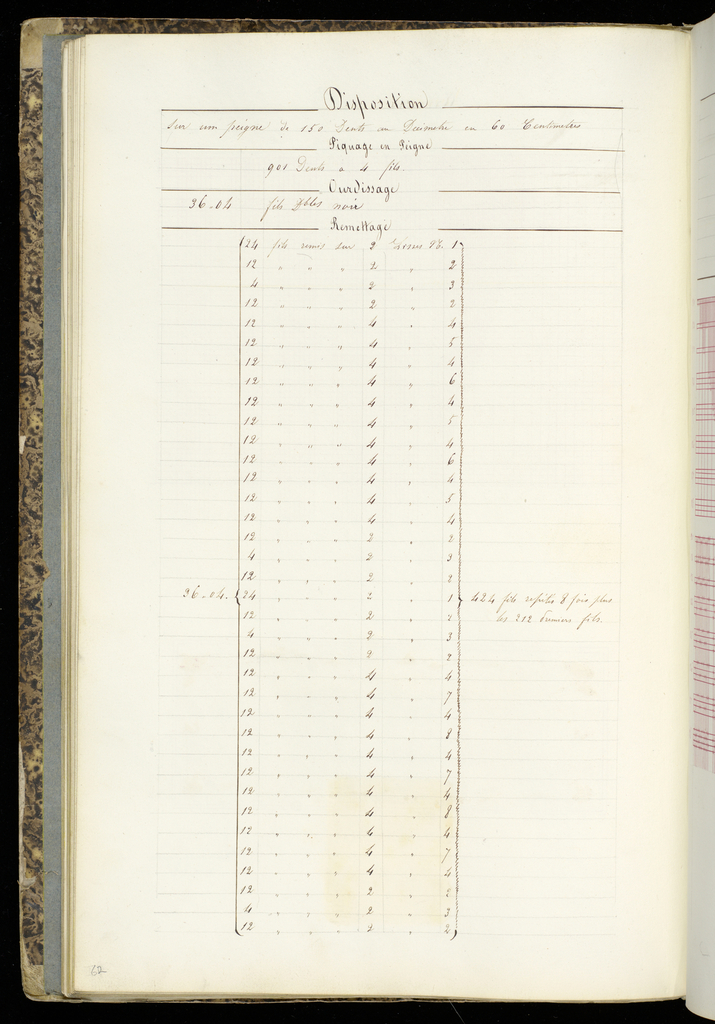 Disposition
sur un peigne de 150 Dents au Decimetre en 60 Centimetres
Piquage en Peigne
901 Dents à 4 fils.
Ourdissage
36.04 fils Dbles noir
Remettage
24 fils remis sur 2 Lisses No. 1
12 " " " 2 " 2
4 " " " 2 " 3
12 " " " 2 " 2
12 " " " 4 " 4
12 " " " 4 " 5
12 " " " 4 " 4
12 " " " 4 " 6
12 " " " 4 " 4
12 " " " 4 " 5
12 " " " 4 " 4
12 " " " 4 " 6
12 " " " 4 " 4
12 " " " 4 " 5
12 " " " 4 " 4
12 " " " 2 " 2
4 " " " 2 " 3
12 " " " 2 " 2
36.04. 24 " " " 2 " 1 424 fils répétés 8 fois plus
12 " " " 2 " 2 les 212 derniers fils.
4 " " " 2 " 3
12 " " " 2 " 2
12 " " " 4 " 4
12 " " " 4 " 7
12 " " " 4 " 4
12 " " " 4 " 8
12 " " " 4 " 4
12 " " " 4 " 7
12 " " " 4 " 4
12 " " " 4 " 8
12 " " " 4 " 4
12 " " " 4 " 7
12 " " " 4 " 4
12 " " " 2 " 2
4 " " " 2 " 3
12 " " " 2 " 2
62